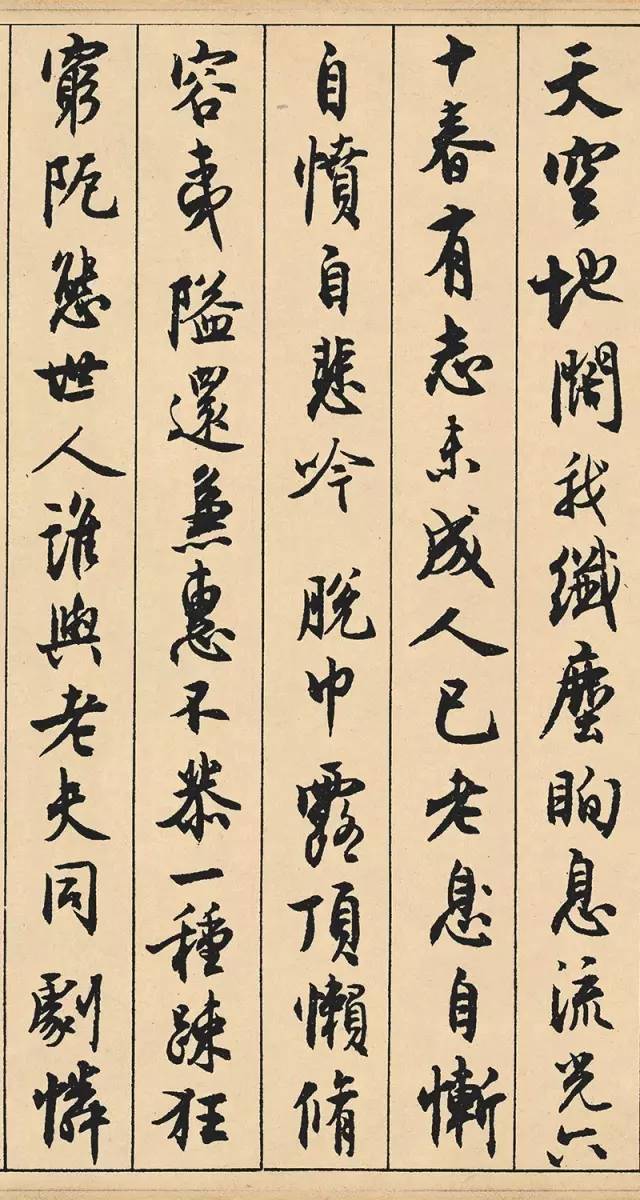 天空地闊我纖塵眴息流光六
十春有志未成人已老息自慚
自憤自悲吟 脫巾露頂懶脩
容夷隘還兼惠不恭一種踈狂
窮阨態世人誰與老夫同 劇憐